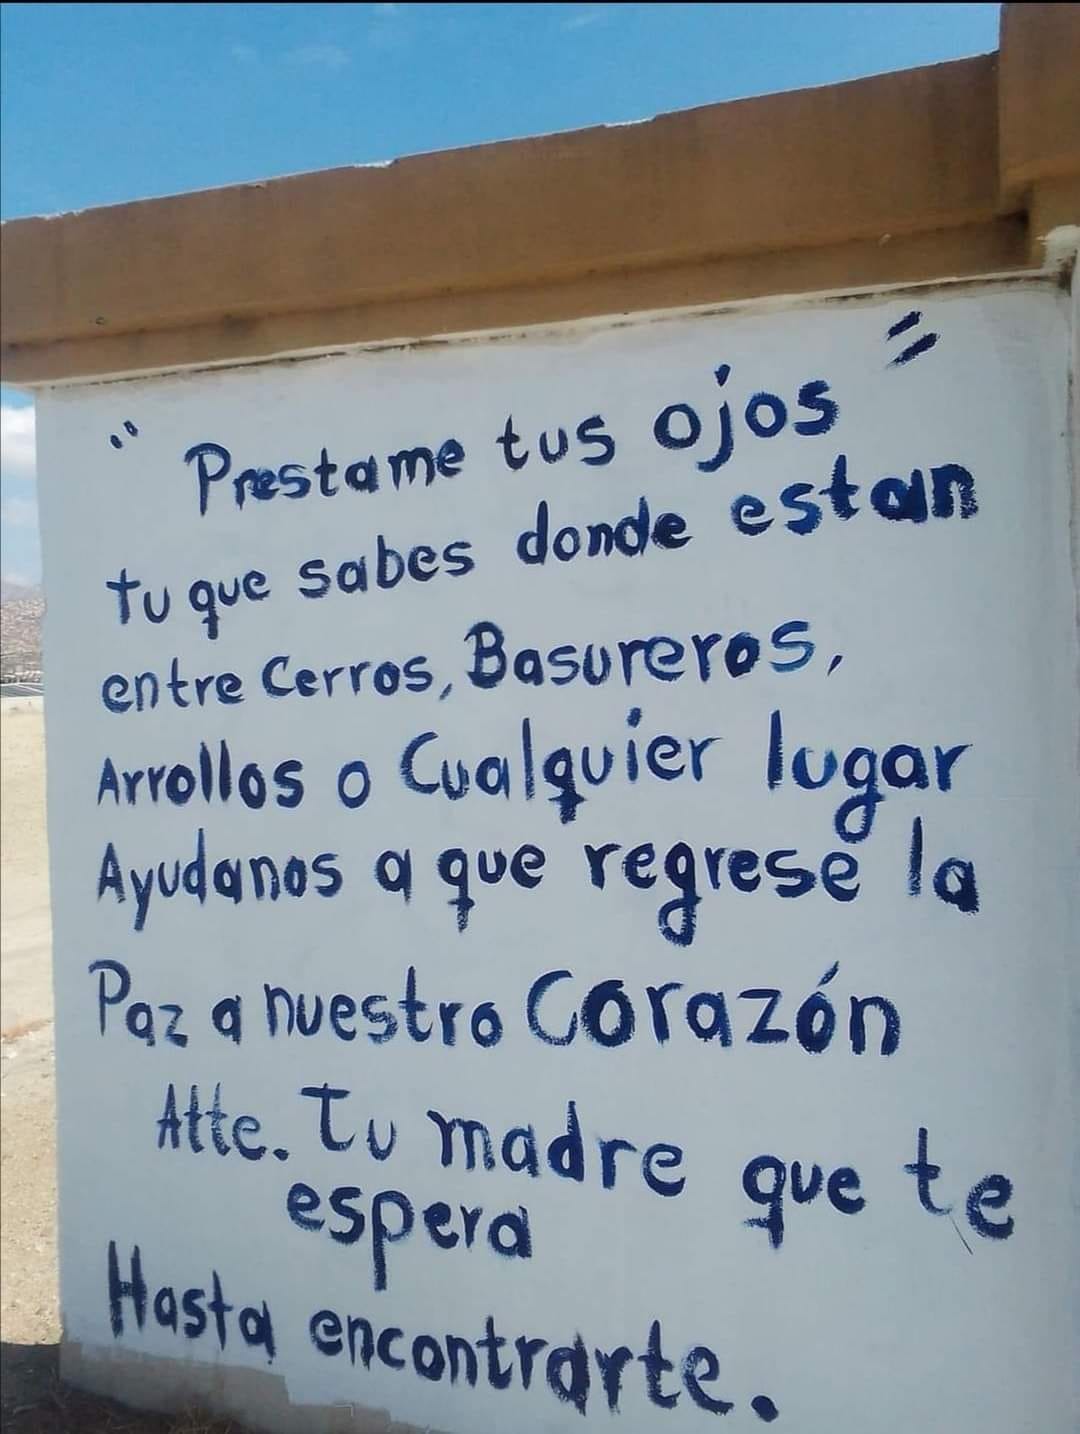 "Prestame tus ojos"
tu que sabes donde estan
entre Cerros, Basureros,
Arrollos o Cualquier lugar
Ayudanos a que regrese la
Paz a nuestro Corazón
Atte. Tu madre que te
espera
Hasta encontrarte.